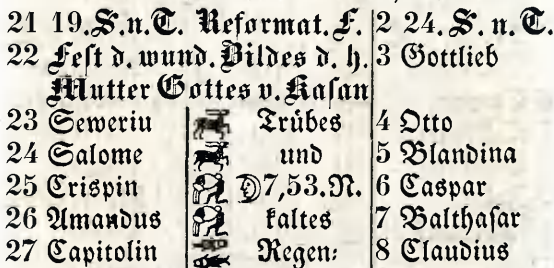 21 19. S. n. T. Reformat. F. 2 24. S. n. T.
22 Fest d. wund. Bildes d. h. 3 Gottlieb
Mutter Gottes v. Kasan
23 Seweriu Trübes 4 Otto
24 Salome und 5 Blandina
25 Crispin 7,53. N. 6 Caspar
26 Amandus kaltes 7 Balthasar
27 Capitolin Regen: 8 Claudius